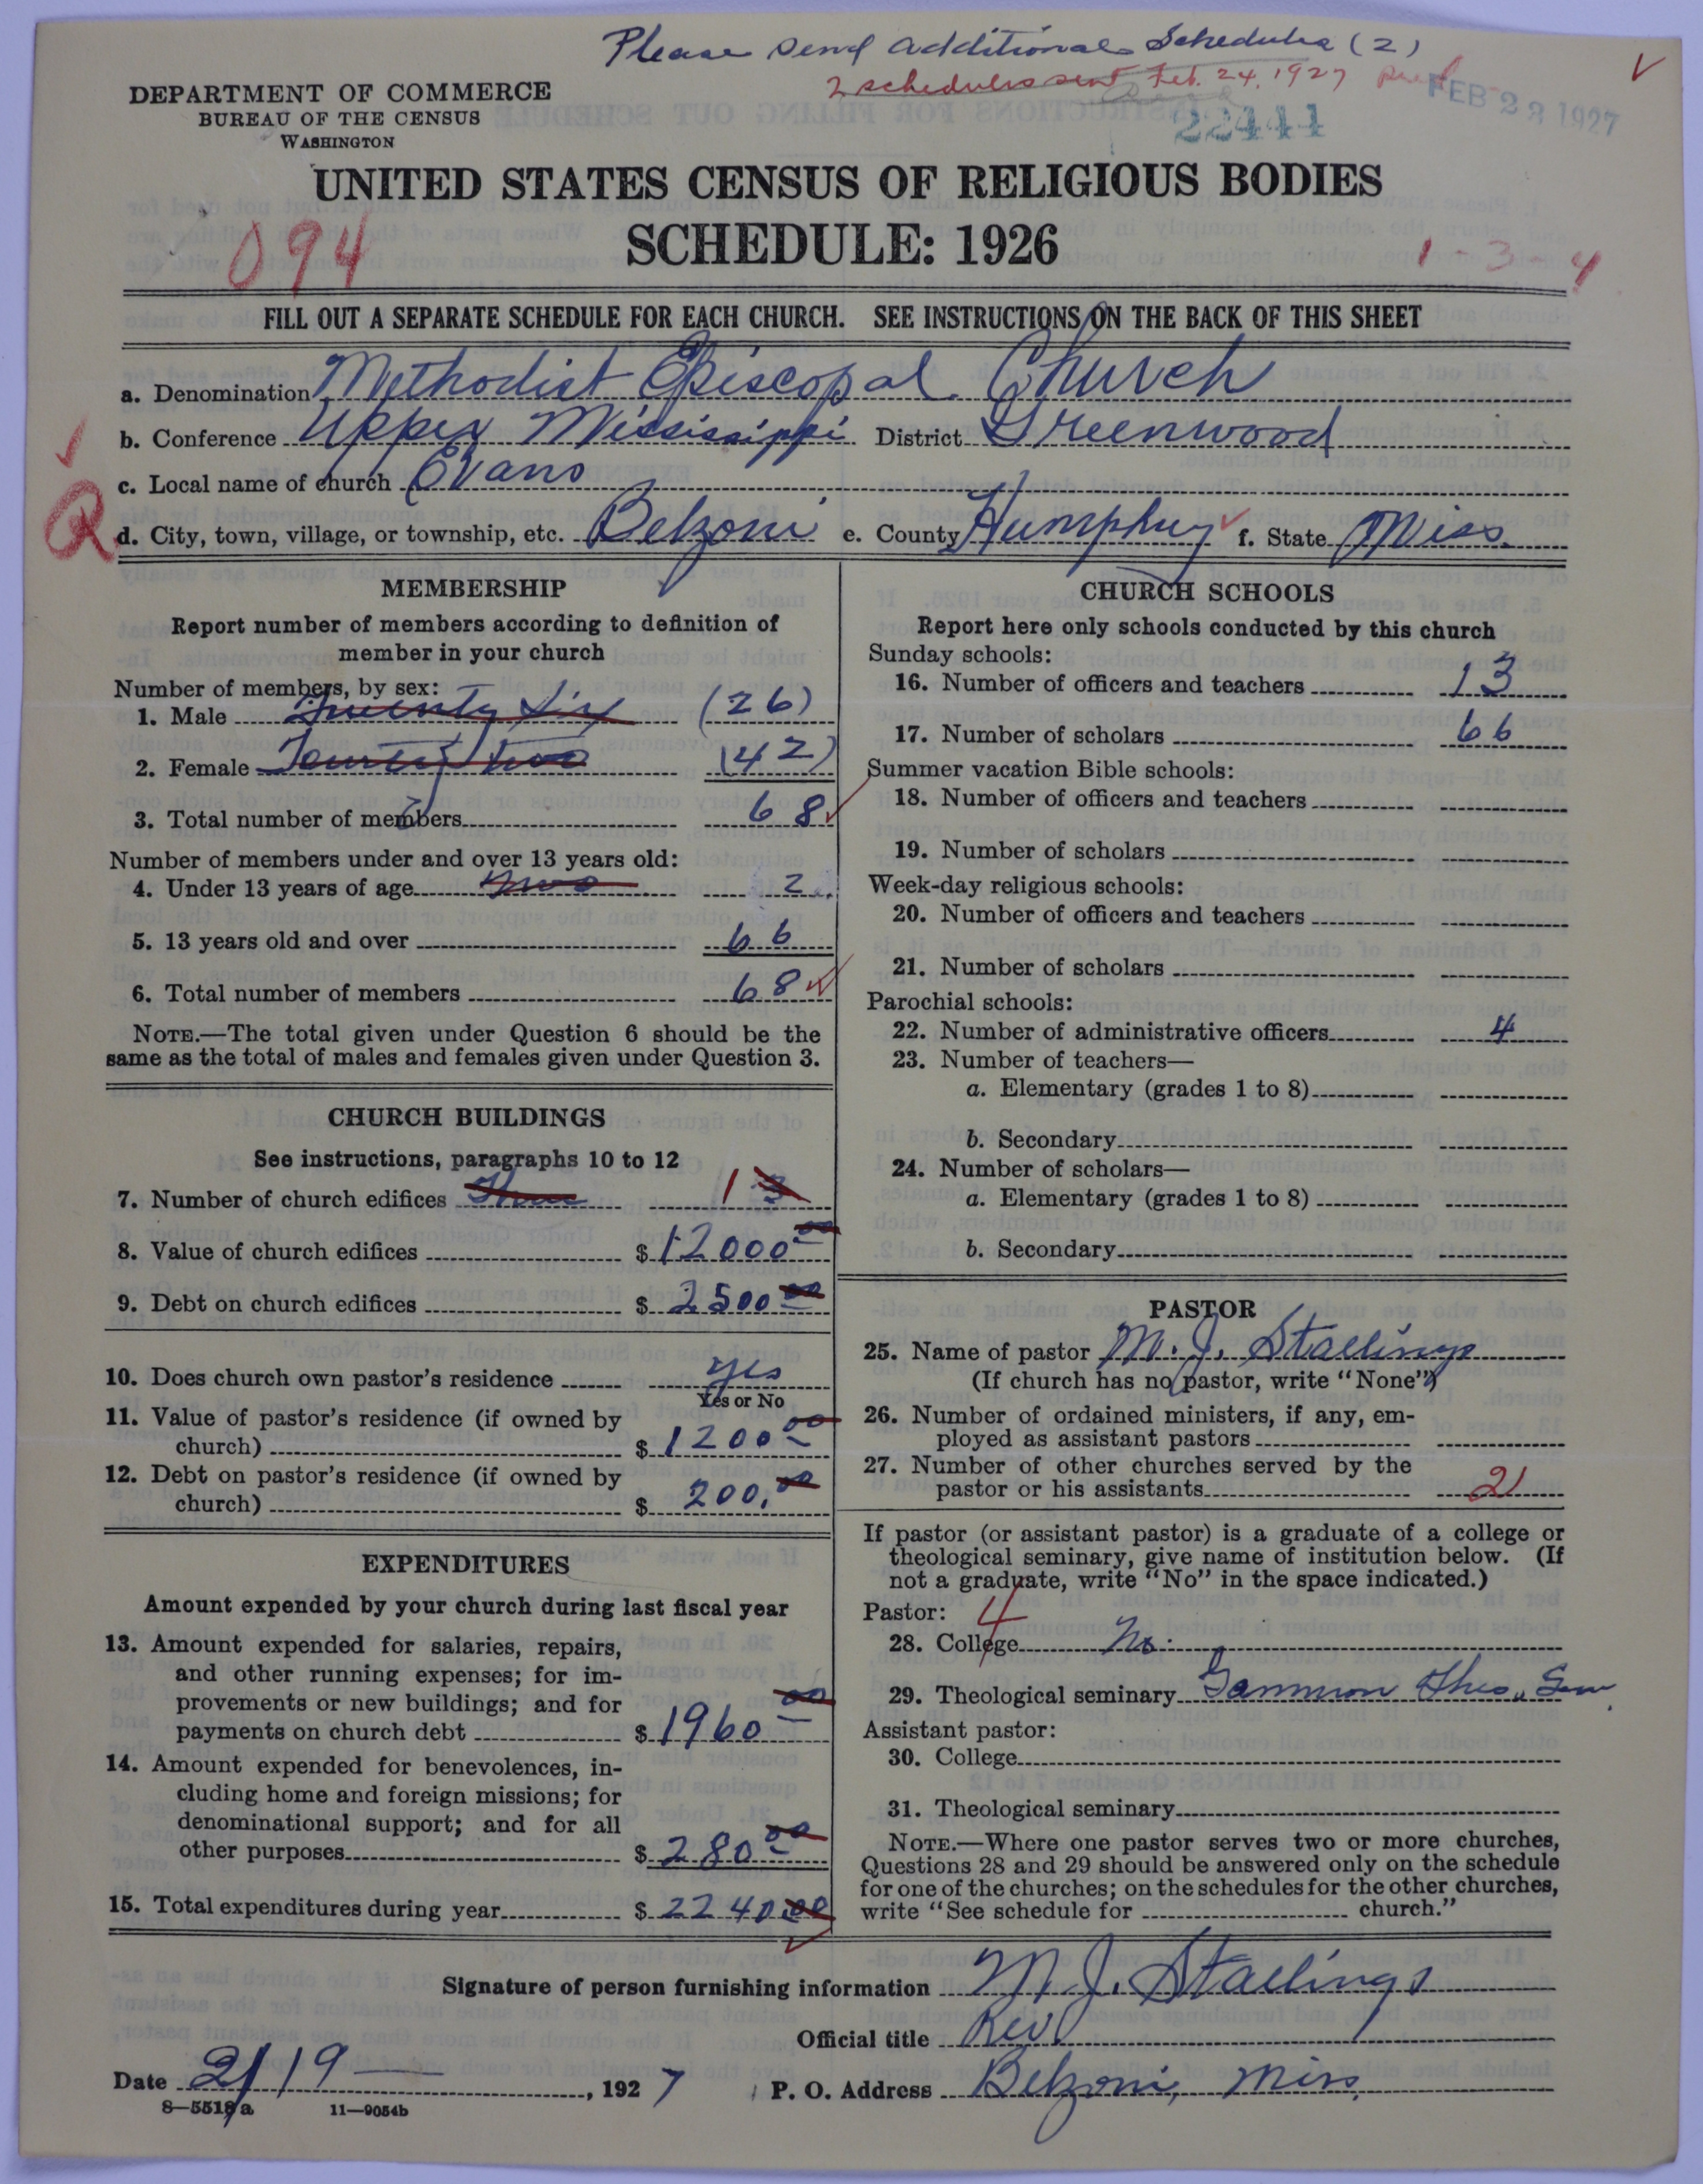 Please send additional Schedules (2)
2 schedules sent Feb. 24, 1927
DEPARTMENT OF COMMERCE
BUREAU OF THE CENSUS
WASHINGTON
FEB 23 1927
22444
UNITED STATES CENSUS OF RELIGIOUS BODIES
SCHEDULE: 1926
094
1-3-4
FILL OUT A SEPARATE SCHEDULE FOR EACH CHURCH. SEE INSTRUCTIONS ON THE BACK OF THIS SHEET
a. Denomination Methodist Episcopal Church
b. Conference Upper Mississippi District Greenwood
c. Local name of church Evans
d. City, town, village, or township, etc. Belzoni e. County Humphrey f. State Miss.
MEMBERSHIP
Report number of members according to definition of
member in your church
Number of members, by sex:
1. Male Twenty Six (26)
2. Female Fourty two (42)
3. Total number of members 68
Number of members under and over 13 years old:
4. Under 13 years of age two 2
5. 13 years old and over 66
6. Total number of members 68
NOTE.—The total given under Question 6 should be the
same as the total of males and females given under Question 3.
CHURCH BUILDINGS
See instructions, paragraphs 10 to 12
7. Number of church edifices Three 1 3
8. Value of church edifices $12000 00
9. Debt on church edifices $2500 00
10. Does church own pastor's residence yes
Yes or No
11. Value of pastor's residence (if owned by
church) $1200 00
12. Debt on pastor's residence (if owned by
church) $200. 00
EXPENDITURES
Amount expended by your church during last fiscal year
13. Amount expended for salaries, repairs,
and other running expenses; for im-
provements or new buildings; and for
payments on church debt $1960 00
14. Amount expended for benevolences, in-
cluding home and foreign missions; for
denominational support; and for all
other purposes $280 00
15. Total expenditures during year $2240.00
CHURCH SCHOOLS
Report here only schools conducted by this church
Sunday schools:
16. Number of officers and teachers 13
17. Number of scholars 66
Summer vacation Bible schools:
18. Number of officers and teachers
19. Number of scholars
Week-day religious schools:
20. Number of officers and teachers
21. Number of scholars
Parochial schools:
22. Number of administrative officers 4
23. Number of teachers—
a. Elementary (grades 1 to 8)
b. Secondary
24. Number of scholars—
a. Elementary (grades 1 to 8)
b. Secondary
PASTOR
25. Name of pastor M. J. Stallings
(If church has no pastor, write "None")
26. Number of ordained ministers, if any, em-
ployed as assistant pastors
27. Number of other churches served by the
pastor or his assistants 2
If pastor (or assistant pastor) is a graduate of a college or
theological seminary, give name of institution below. (If
not a graduate, write "No" in the space indicated.)
Pastor: 4
28. College No.
29. Theological seminary Gammon Theo. Sem.
Assistant pastor:
30. College
31. Theological seminary
NOTE.—Where one pastor serves two or more churches,
Questions 28 and 29 should be answered only on the schedule
for one of the churches; on the schedules for the other churches,
write "See schedule for church."
Signature of person furnishing information M. J. Stallings
Official title Rev.
Date 2/19, 1927 P. O. Address Belzoni, Miss.
8—5518a 11—9054b